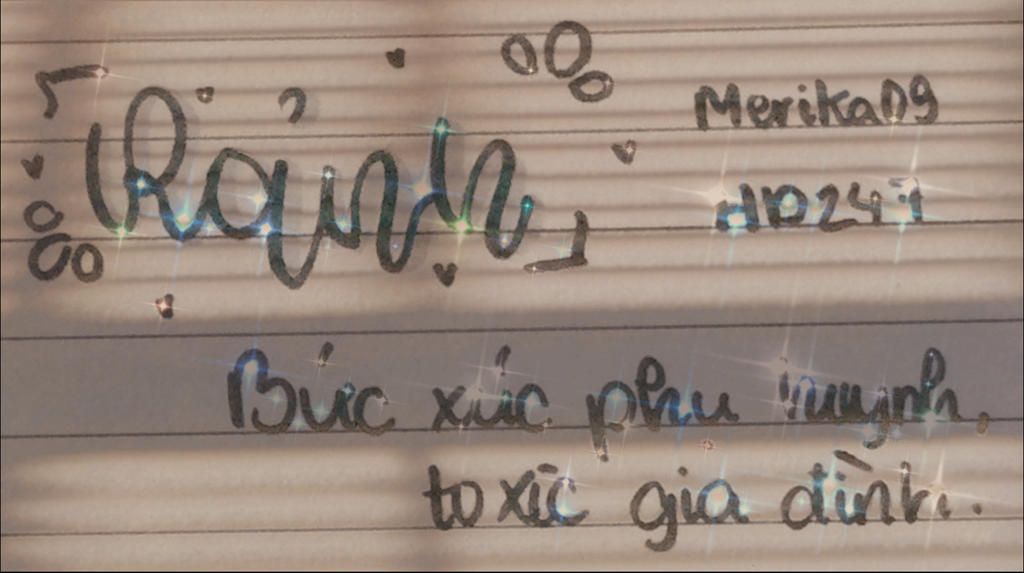 Rảnh
Merika09
Bức xúc phụ huynh,
toxic gia đình.